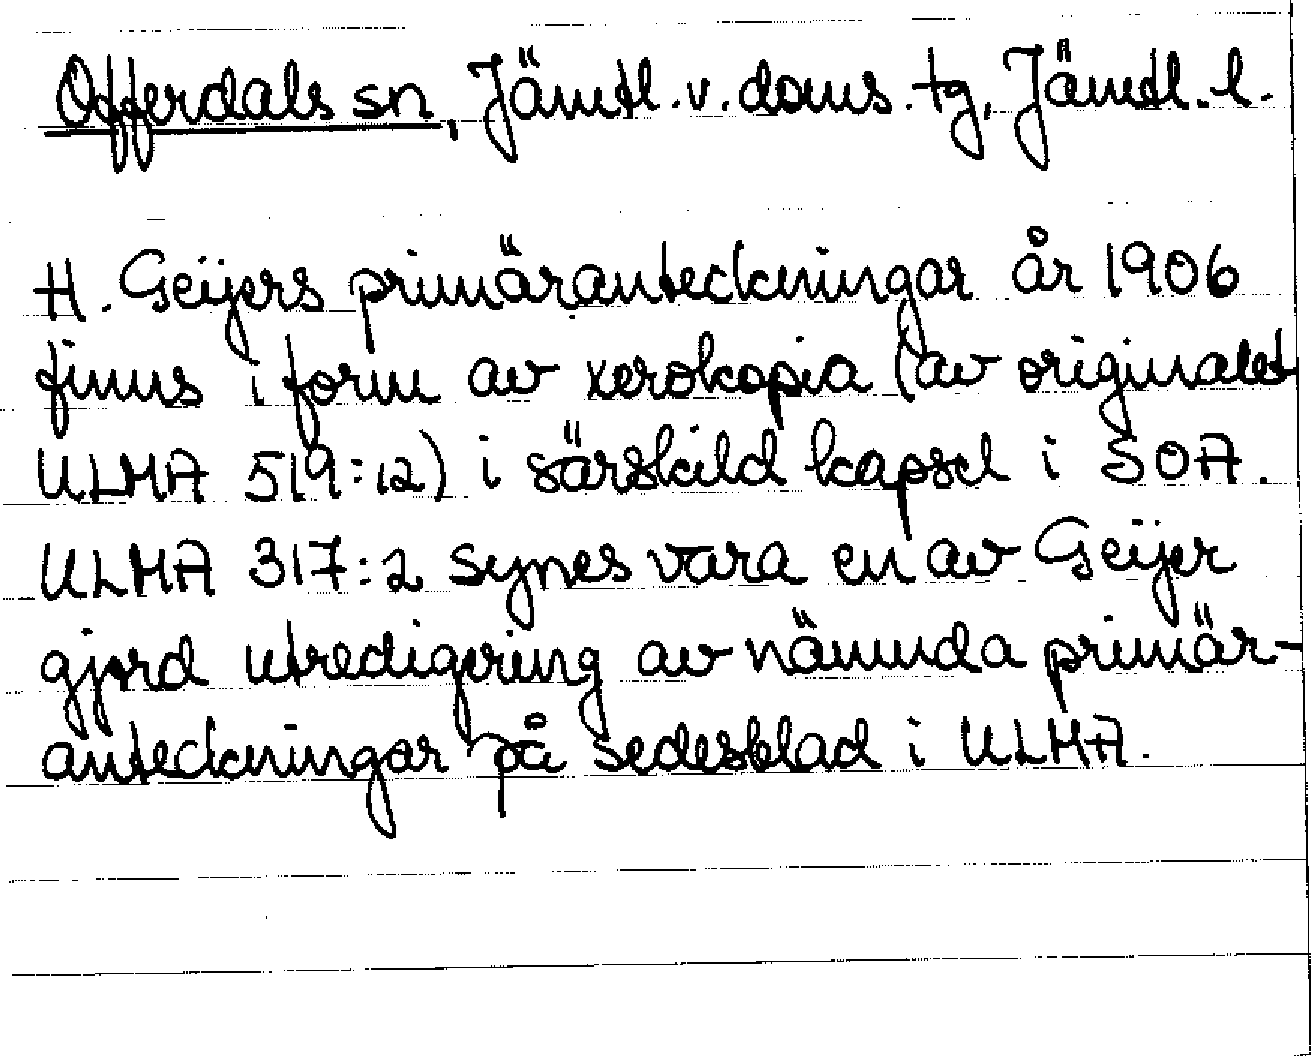 Offerdals sn, Jämtl. v. doms. tg, Jämtl. l.
H. Geijers primäranteckningar år 1906
finns i form av xerokopia (av originalet
ULMA 519:12) i särskild kapsel i SOA.
ULMA 317:2 synes vara en av Geijer
gjord utredigering av nämnda primär-
anteckningar på sedesblad i ULMA.